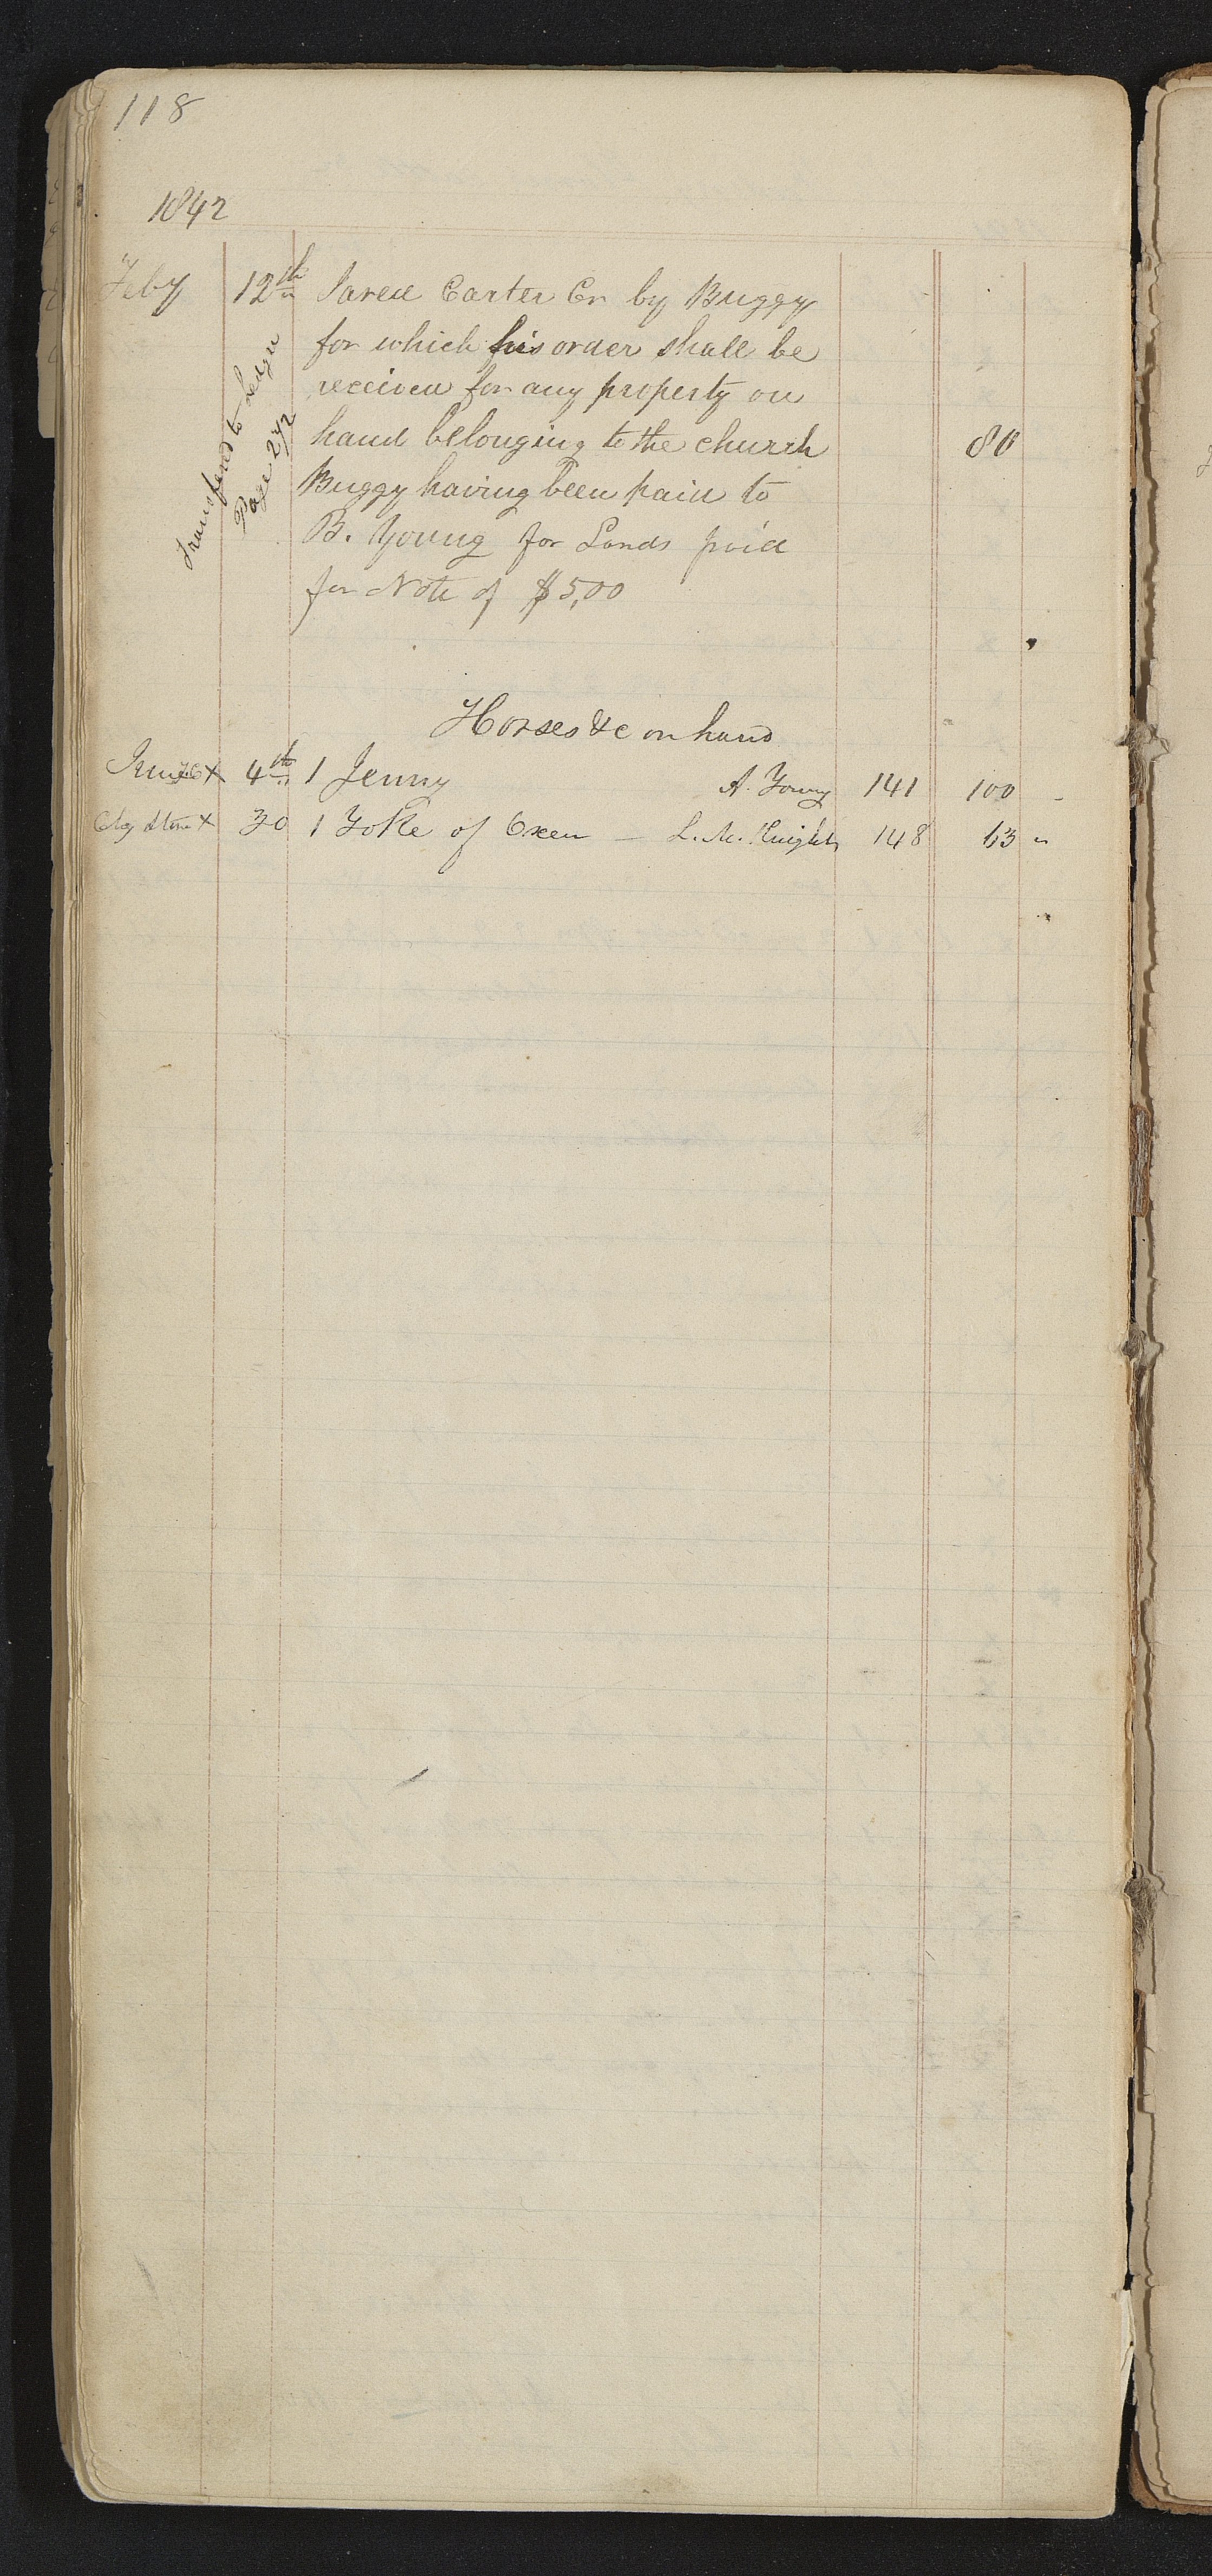 118
1842
Feby 12th Jared Carter Cr by Buggy
for which his order shall be
received for any property on
hand belonging to the church 80
Buggy having been paid to
B. Young for Lands paid
for Note of $5,00
Transfered to Ledger
Page 272
Horses &c on hand
June X 4th 1 Jenny A. Young 141 100 -
X 30 1 Yoke of Oxen — L. M. Knight 148 63 "